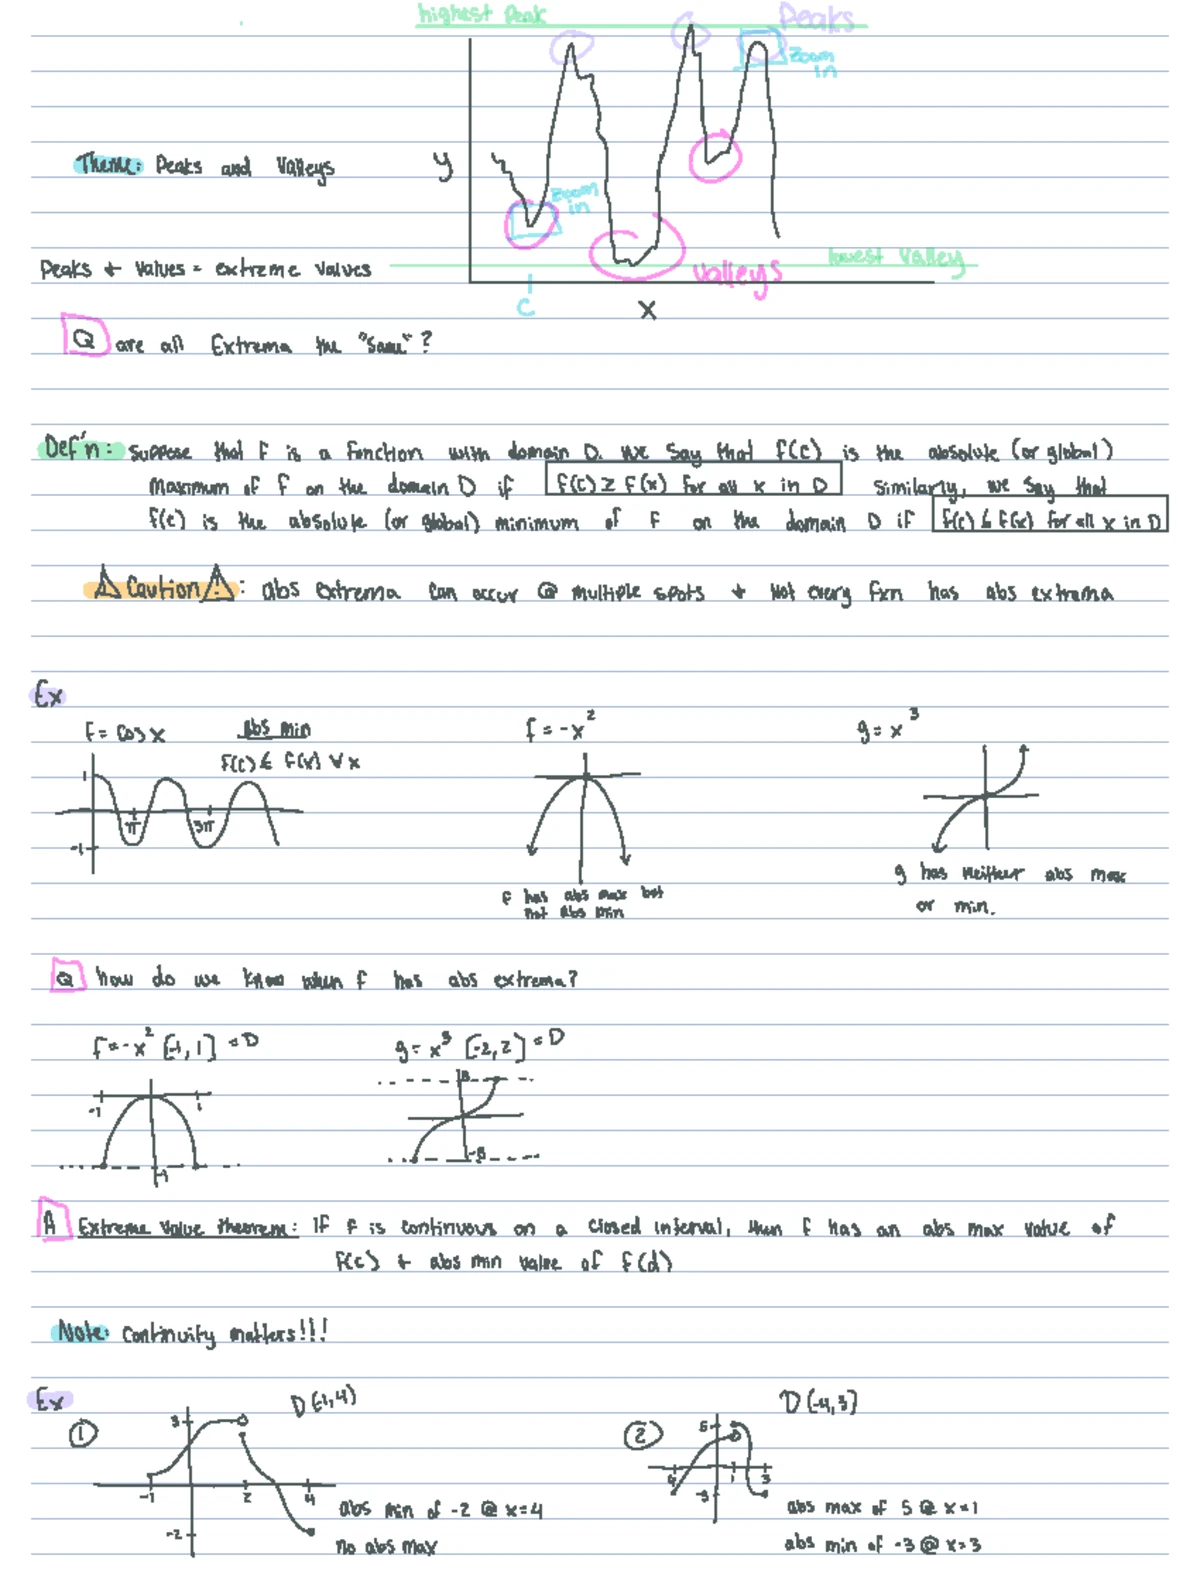 highest Peak
Peaks
Zoom in
Theme: Peaks and Valleys
y
Zoom in
lowest valley
Peaks + Values = extreme values
valleys
C
x
Q are all Extrema the "same"?
Def'n: Suppose that f is a function with domain D. We say that f(c) is the absolute (or global)
maximum of f on the domain D if f(c) ≥ f(x) for all x in D Similarly, we say that
f(c) is the absolute (or global) minimum of f on the domain D if f(c) ≤ f(x) for all x in D
⚠ Caution ⚠: abs extrema can occur @ multiple spots + Not every fxn has abs extrema
Ex
f = cos x
abs min
f(c) ≤ f(x) ∀ x
f = -x²
g = x³
1
π
3π
-1
f has abs max but
not abs min
g has neither abs max
or min.
Q how do we know when f has abs extrema?
f = -x² [-1, 1] = D
g = x³ [-2, 2] = D
-1
1
-1
8
-8
A Extreme Value Theorem: If f is continuous on a closed interval, then f has an abs max value of
f(c) + abs min value of f(d)
Note: Continuity matters!!!
Ex
1
D [-1, 4]
3
-1
2
4
-2
abs min of -2 @ x=4
no abs max
2
D [-4, 3]
5
1
3
-3
abs max of 5 @ x=1
abs min of -3 @ x=3